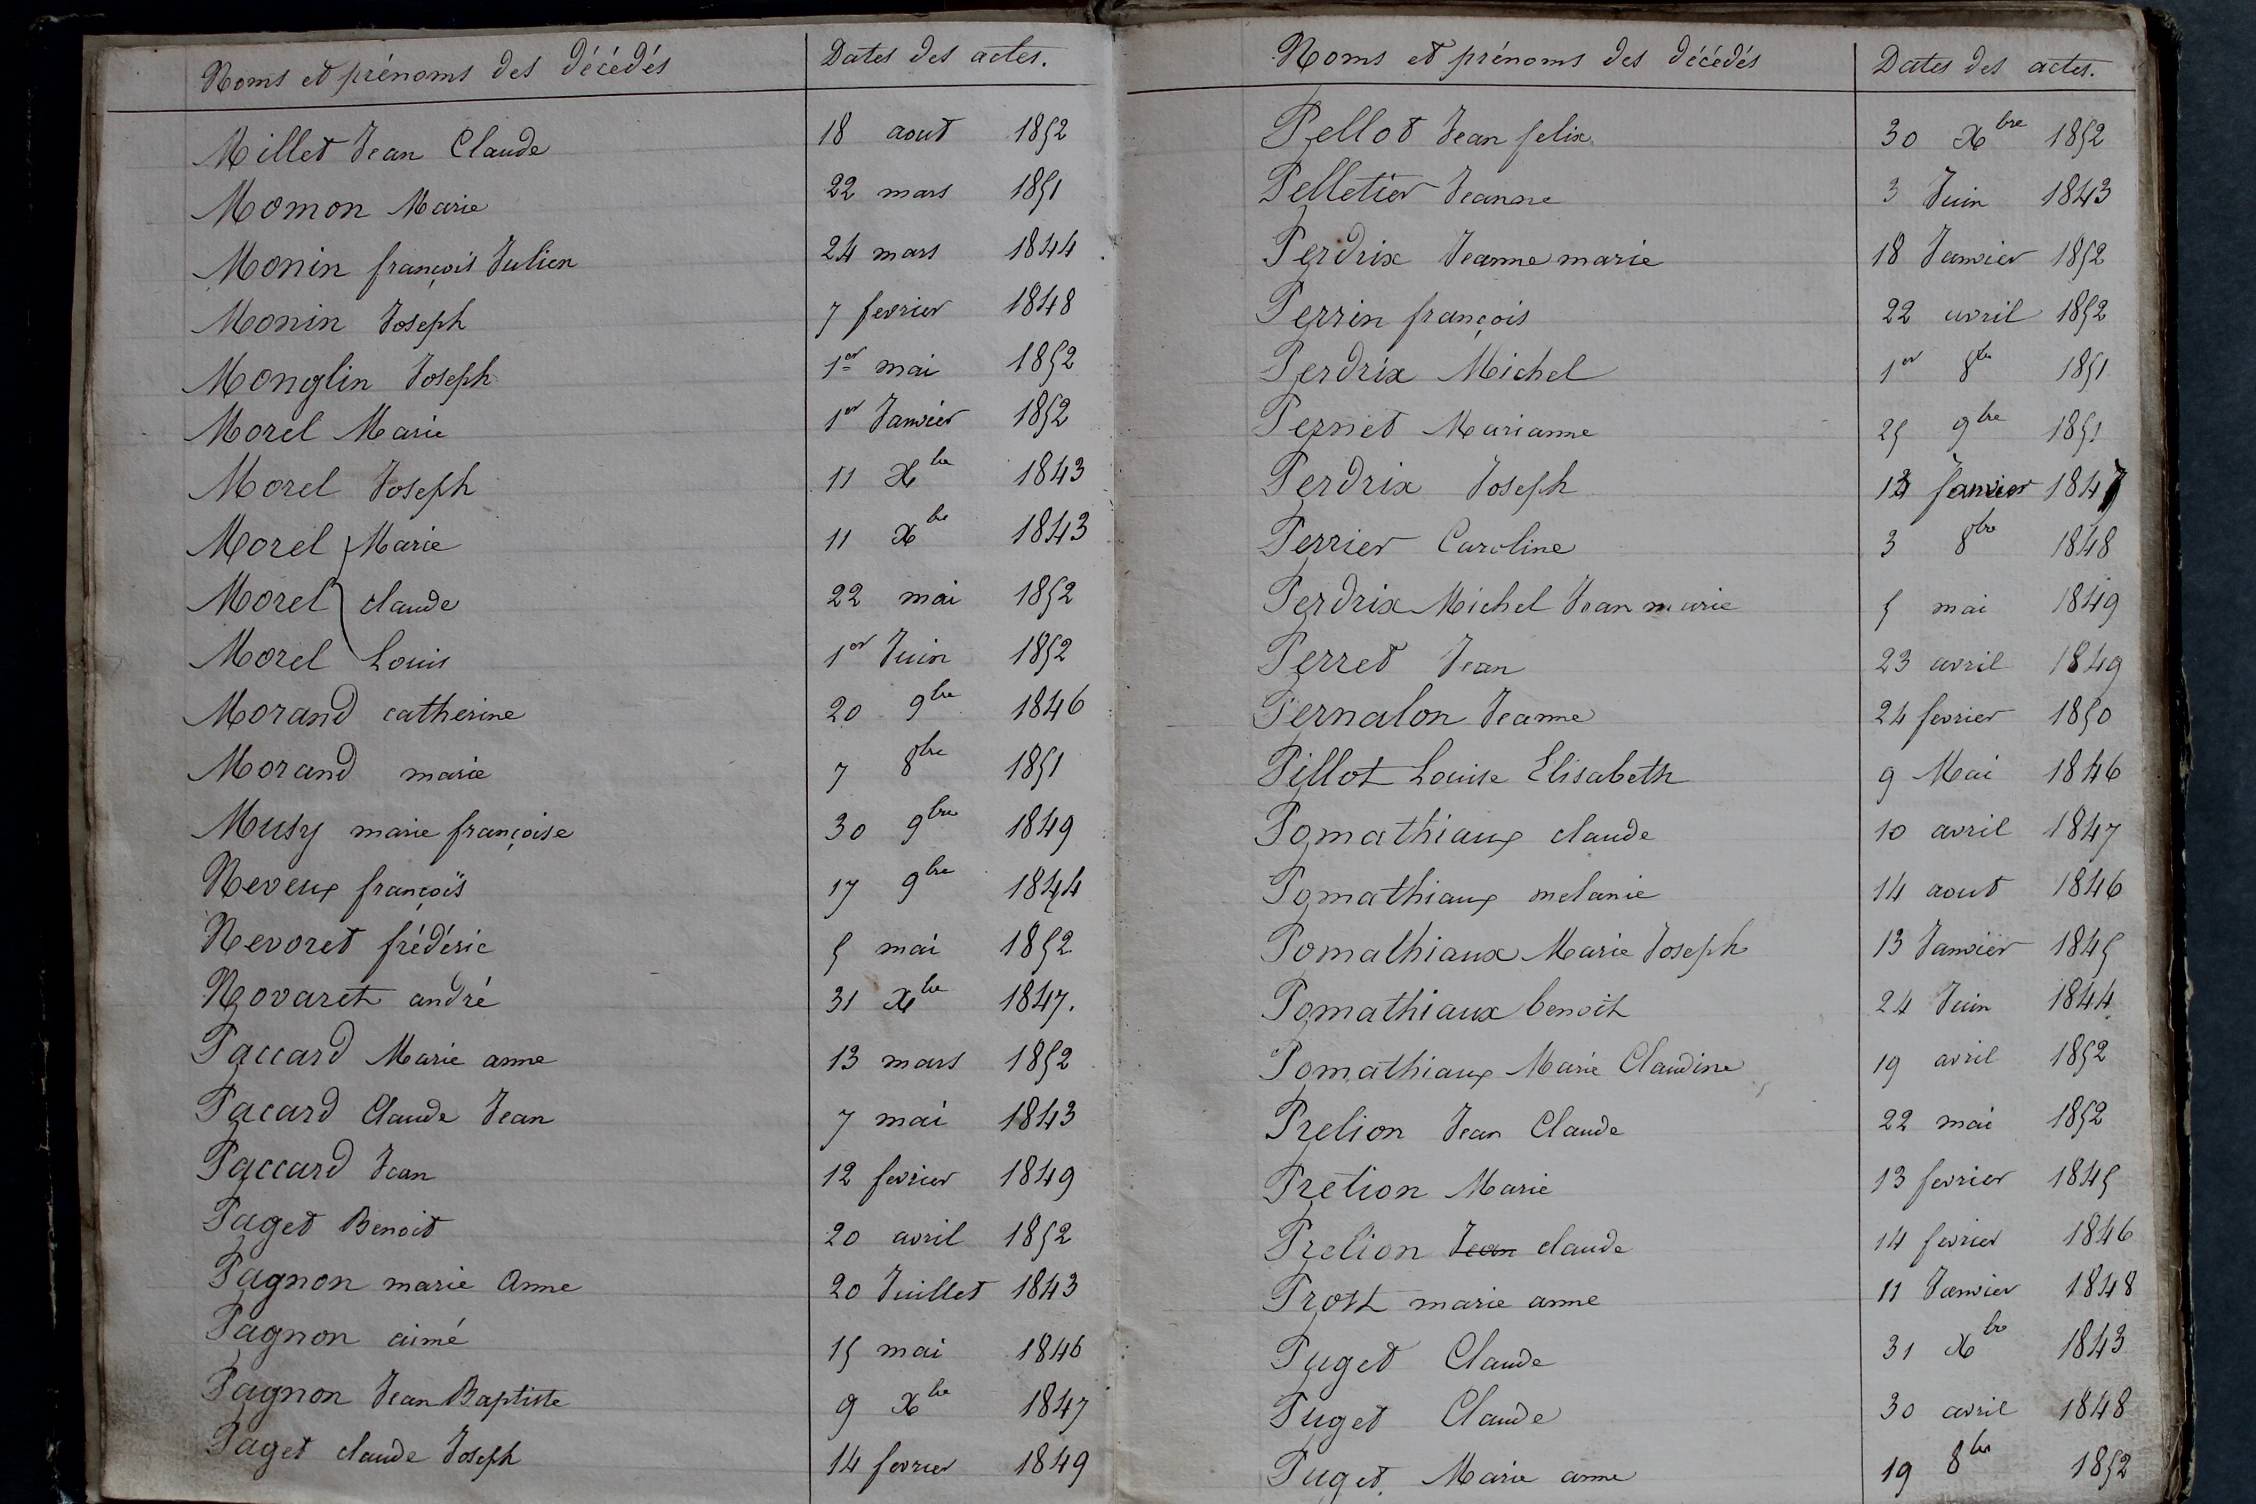 Noms et prénoms des décédés Dates des actes.
Millet Jean Claude 18 aout 1852
Momon Marie 22 mars 1851
Monin françois Julien 24 mars 1844
Monin Joseph 7 fevrier 1848
Monglin Joseph 1er mai 1852
Morel Marie 1er Janvier 1852
Morel Joseph 11 Xbre 1843
Morel Marie 11 Xbre 1843
Morel claude 22 mai 1852
Morel Louis 1er Juin 1852
Morand catherine 20 9bre 1846
Morand marie 7 8bre 1851
Musy marie françoise 30 9bre 1849
Neveux françois 17 9bre 1844
Nevoret frédéric 5 mai 1852
Novaret andré 31 Xbre 1847.
Paccard Marie anne 13 mars 1852
Pacard Claude Jean 7 mai 1843
Paccard Jean 12 fevrier 1849
Paget Benoit 20 avril 1852
Pagnon marie Anne 20 Juillet 1843
Pagnon aimé 15 mai 1846
Pagnon Jean Baptiste 9 Xbre 1847
Paget claude Joseph 14 fevrier 1849
Noms et prénoms des décédés Dates des actes.
Pellot Jean felix 30 Xbre 1852
Pelletier Jeanne 3 Juin 1843
Perdrix Jeanne marie 18 Janvier 1852
Perrin françois 22 avril 1852
Perdrix Michel 1er 8bre 1851
Pernet Marianne 25 9bre 1851
Perdrix Joseph Janvier 1847
Perrier Caroline 3 8bre 1848
Perdrix Michel Jean marie 5 mai 1849
Perret Jean 23 avril 1849
Pernalon Jeanne 24 fevrier 1850
Pillot Louise Elisabeth 9 Mai 1846
Pomathiaux claude 10 avril 1847
Pomathiaux melanie 14 aout 1846
Pomathiaux Marie Joseph 13 Janvier 1845
Pomathiaux benoit 24 Juin 1844
Pomathiaux Marie Claudine 19 avril 1852
Prelion Jean Claude 22 mai 1852
Prelion Marie 13 fevrier 1845
Prelion Jean claude 14 fevrier 1846
Prost marie anne 11 Janvier 1848
Puget Claude 31 Xbre 1843
Puget Claude 30 avril 1848
Puget Marie anne 19 8bre 1852